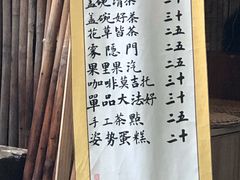 盖碗清茶 二十
盖碗好茶 三十
花草皆茶 二五
雾隐門 二五
果里果汽 二五
咖啡莫吉托 三十
單品大法好 三十
手工茶點 二五
姿势蛋糕 二十